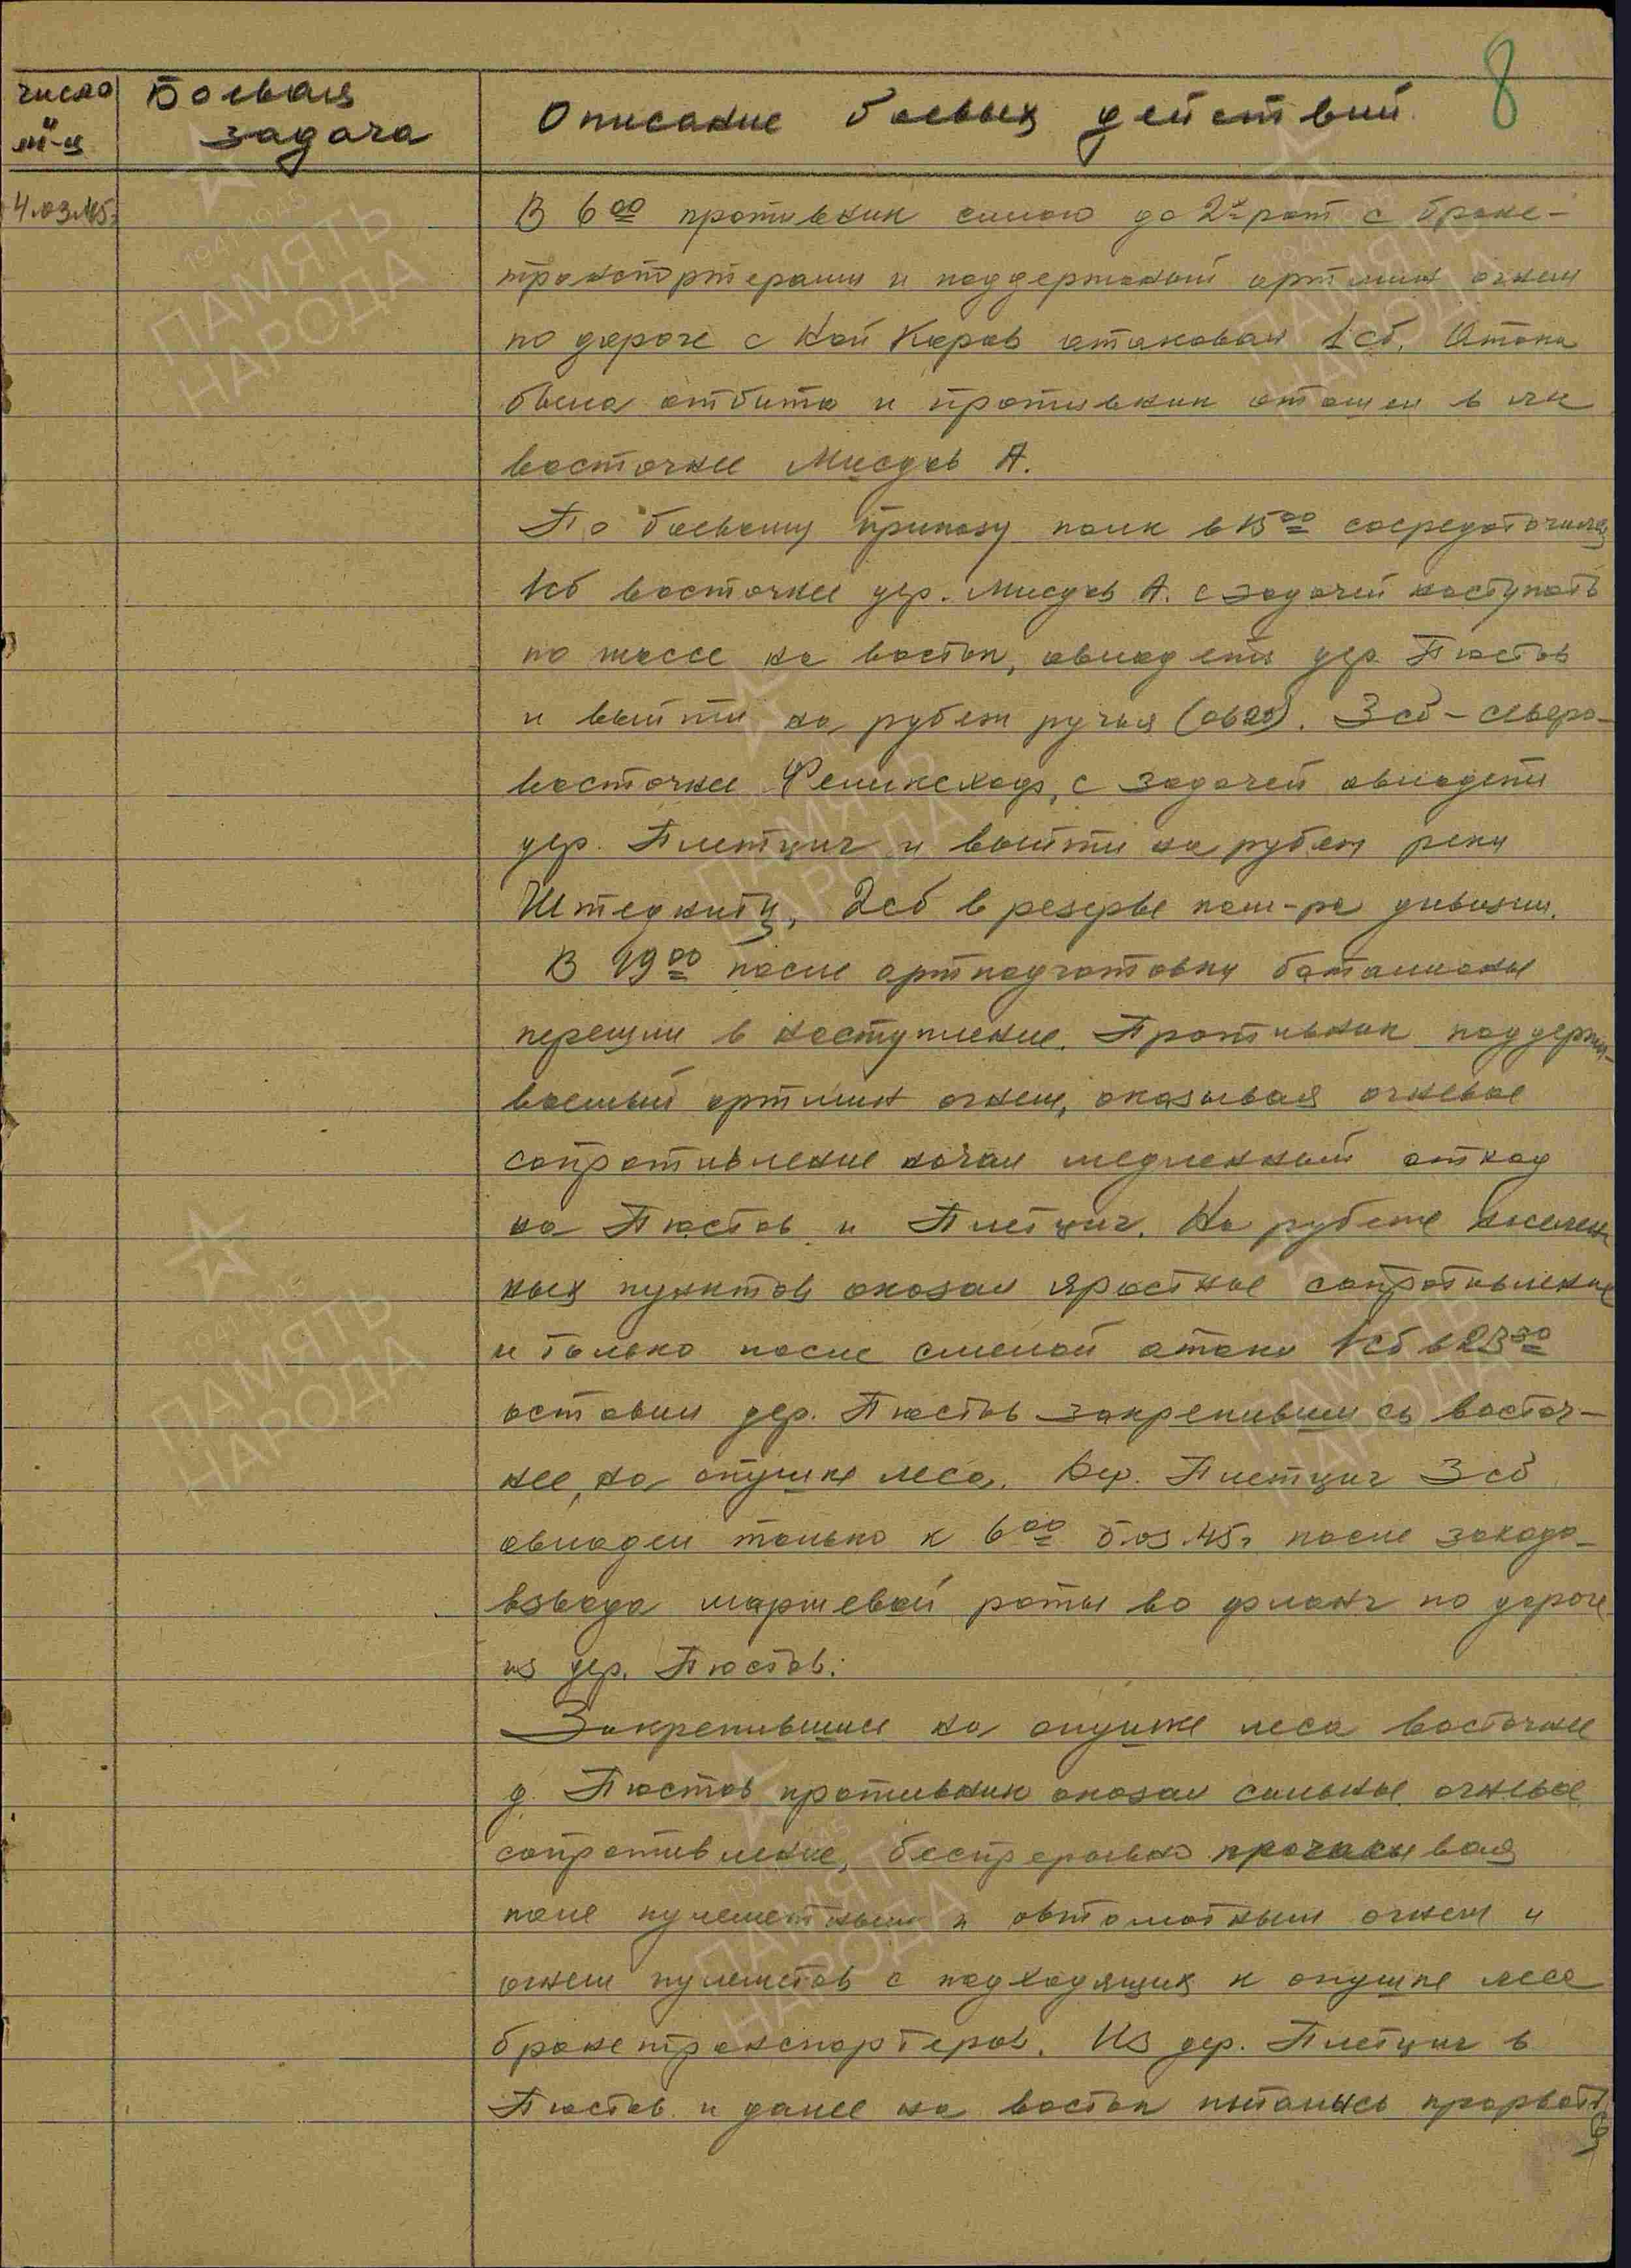 8
число
и
м-ц
Боевая
задача
Описание боевых действий
4.03.45г
В 6 00 противник силою до 2х рот с броне-
транспортерами и поддержаный арт мин огнем
по дороге с Ной Керов атаковал 1сб. Атака
была отбита и противник отошел в лес
восточнее Мисдов А.
По боевому приказу полк в 15 00 сосредоточился
1сб восточнее дер. Мисдов А. с задачей наступать
по шоссе на восток, овладеть дер. Пюстов
и выйти на рубеж ручья. 3сб - северо-
восточнее с задачей овладеть
дер. Плетциг и выйти на рубеж реки
Штедкитц, 2сб в резерве ком-ра дивизии.
В 19 00 после артподготовки батальоны
перешли в наступление. Противник поддержи-
ваемый арт мин огнем, оказывая огневое
сопротивление начал медленный отход
на Пюстов и Плетциг. На рубеже населен
ных пунктов оказал яростное сопротивление
и только после смелой атаки 1сб в 23 30
оставил дер. Пюстов закрепившись восточ-
нее, на опушке леса. Дер. Плетциг 3сб
овладел только к 6 00 5.03.45г после захода
взвода маршевой роты во фланг по дороге
из дер. Пюстов.
Закрепившись на опушке леса восточнее
д. Пюстов противник оказал сильное огневое
сопротивление, беспрерывно прочесывая
поле пулеметным и автоматным огнем и
огнем пулеметов с подходящих к опушке леса
бронетранспортеров. Из дер. Плетциг в
Пюстов и далее на восток пытались прорваться
ПАМЯТЬ
НАРОДА
1941-1945